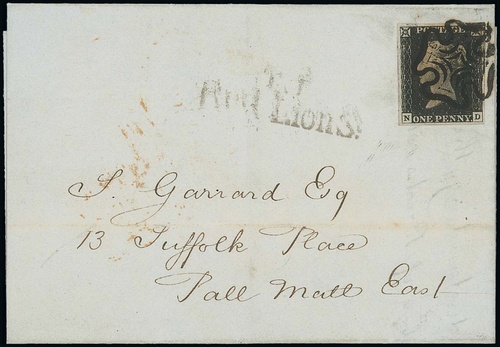 POSTAGE
N ONE PENNY. D
T.P
Red Lion S!
S. Garrard Esq
13 Suffolk Place
Pall Mall East